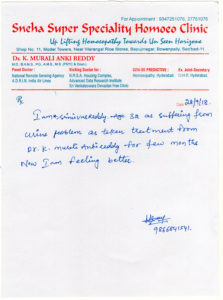 For Appointment : 9347251076, 27751076
Sneha Super Speciality Homoeo Clinic
Up Lifting Homoeopathy Towards Un Seen Horizons
Shop No. 11, Model Towers, Near Warangal Rice Stores, Bapujinagar, Bowenpally, Sec'bad-11
Dr. K. MURALI ANKI REDDY
Panel Doctor :
National Remote Sensing Agency
Visiting Doctor for :
N.R.S.A. Housing Complex,
Advanced Data Research Institute
Sri Venkateswara Devasthan Free Clinic
Homoeopathy, Hyderabad
Ex. Joint Secretary
Rx
Date 28/9/18.
I am Srinivas reddy age 32 as suffering from
urine problem as taken treatment from
Dr. K. Murali Anki reddy for few months
Now I am feeling better.